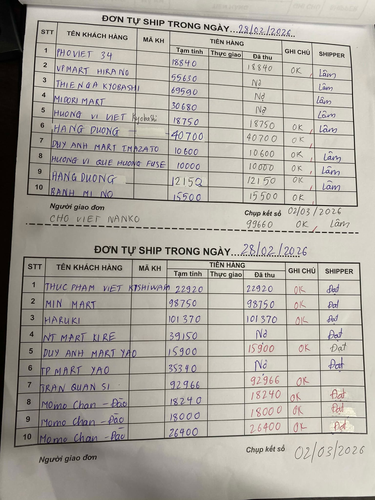 ĐƠN TỰ SHIP TRONG NGÀY 28/02/2026
STT TÊN KHÁCH HÀNG MÃ KH TIỀN HÀNG GHI CHÚ SHIPPER
Tạm tính Thực giao Đã thu
1 PHO VIET 34 18840 18840 OK, Lâm
2 VTMART HIRANO 55650 Nợ Lâm
3 THIEN GA KYOBASHI 69590 Nợ Lâm
4 MIDORI MART 30680 Nợ Lâm
5 HUONG VI VIET Kyobashi 18750 18750 OK, Lâm
6 HANG DUONG 40700 40700 OK,
7 DUY ANH MART IMAZATO 10600 10600 OK, Lâm
8 HUONG VI QUE HUONG FUSE 10000 10000 OK, Lâm
9 HANG DUONG 12150 12150 OK, Lâm
10 BANH MI NO 15500 15500 OK,
Người giao đơn Chụp kết số 02/03/2026
CHO VIET NANKO 99660 OK, Lâm
ĐƠN TỰ SHIP TRONG NGÀY 28/02/2026
STT TÊN KHÁCH HÀNG MÃ KH TIỀN HÀNG GHI CHÚ SHIPPER
Tạm tính Thực giao Đã thu
1 THUC PHAM VIET KISHIWADA 22920 22920 OK Đạt
2 MIN MART 98750 98750 OK Đạt
3 HARUKI 101370 101370 OK Đạt
4 NT MART RIRE 39150 Nợ Đạt
5 DUY ANH MART YAO 15900 15900 OK Đạt
6 TP MART YAO 35390 Nợ Đạt
7 TRAN QUAN SI 92966 92966 OK
8 Momo Chan - Đào 18240 18240 OK Đạt
9 Momo Chan - Đào 18000 18000 OK Đạt
10 Momo Chan - Đào 26400 26400 OK Đạt
Người giao đơn Chụp kết số 02/03/2026